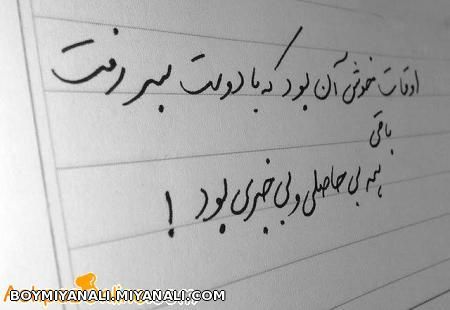 اوقات خوش آن بود که با دوست بسر رفت
باقی
همه بی حاصلی و بی خبری بود !
BOYMIYANALI.MIYANALI.COM